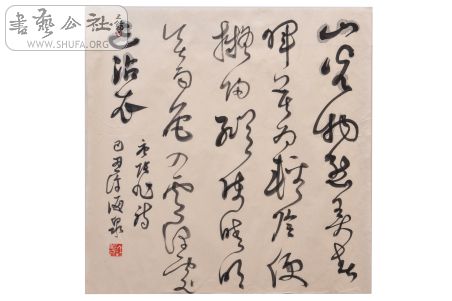 書藝公社
WWW.SHUFA.ORG
山光物態弄春
暉莫為輕陰便
擬歸縱使晴明
無雨色入雲深處
亦沾衣
唐張旭詩
己丑 海泉